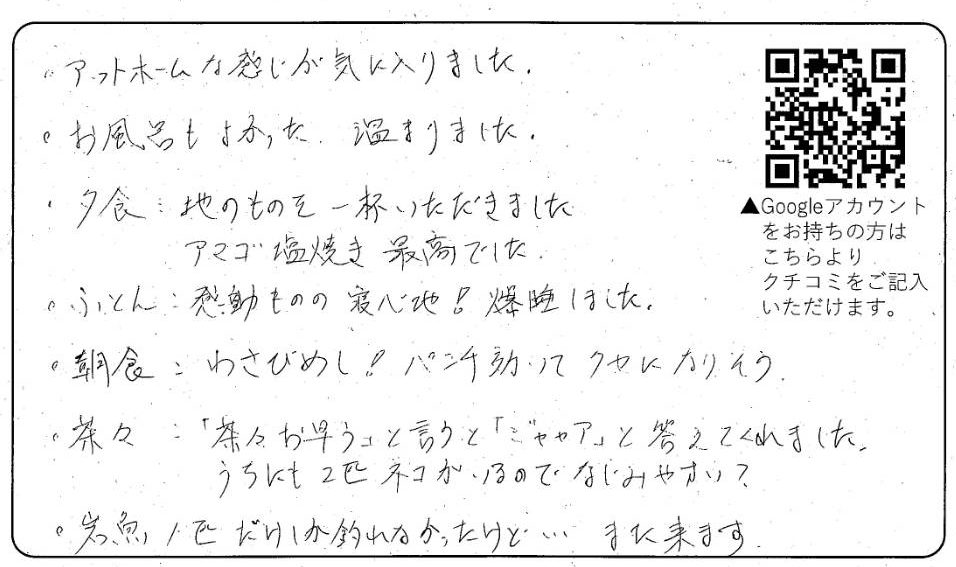 。アットホームな感じが気に入りました.
。お風呂もよかった. 温まりました.
・夕食:地のものを一杯いただきました
アマゴ塩焼き 最高でした.
。ふとん:感動ものの寝心地!爆睡しました.
。朝食:わさびめし!パンチ効いてクセになりそう.
。茶々:「茶々お早う」と言うと「ジャャア」と答えてくれました.
うちにも2匹ネコがいるのでなじみやすい?
。岩魚1匹だけしか釣れなかったけど… また来ます.
▲Googleアカウント
をお持ちの方は
こちらより
クチコミをご記入
いただけます。